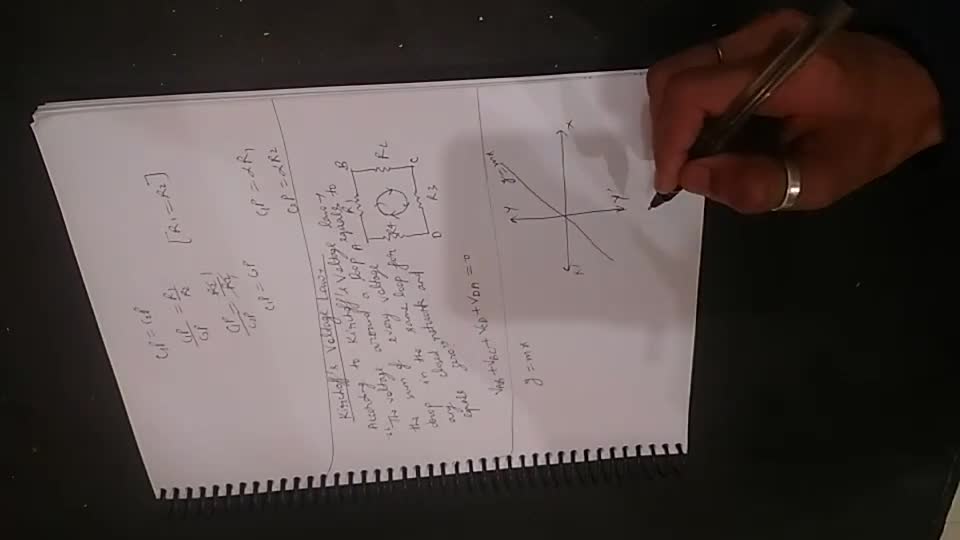 C1P = C2P
C1P/C2P = R1/R2 [R1 = R2]
C1P/C2P = R1/R1
C1P = C2P
C1P = αR1
C2P = αR2
Kirchoff's Voltage Law:-
According to Kirchoff's Voltage law
"The voltage around a loop equals to
the sum of every voltage
drop in the same loop for
any closed network and
equals zero."
A R1 B
R4 R2
D R3 C
VAB + VBC + VCD + VDA = 0
y = mx
Y
y=mx
X' X
Y'